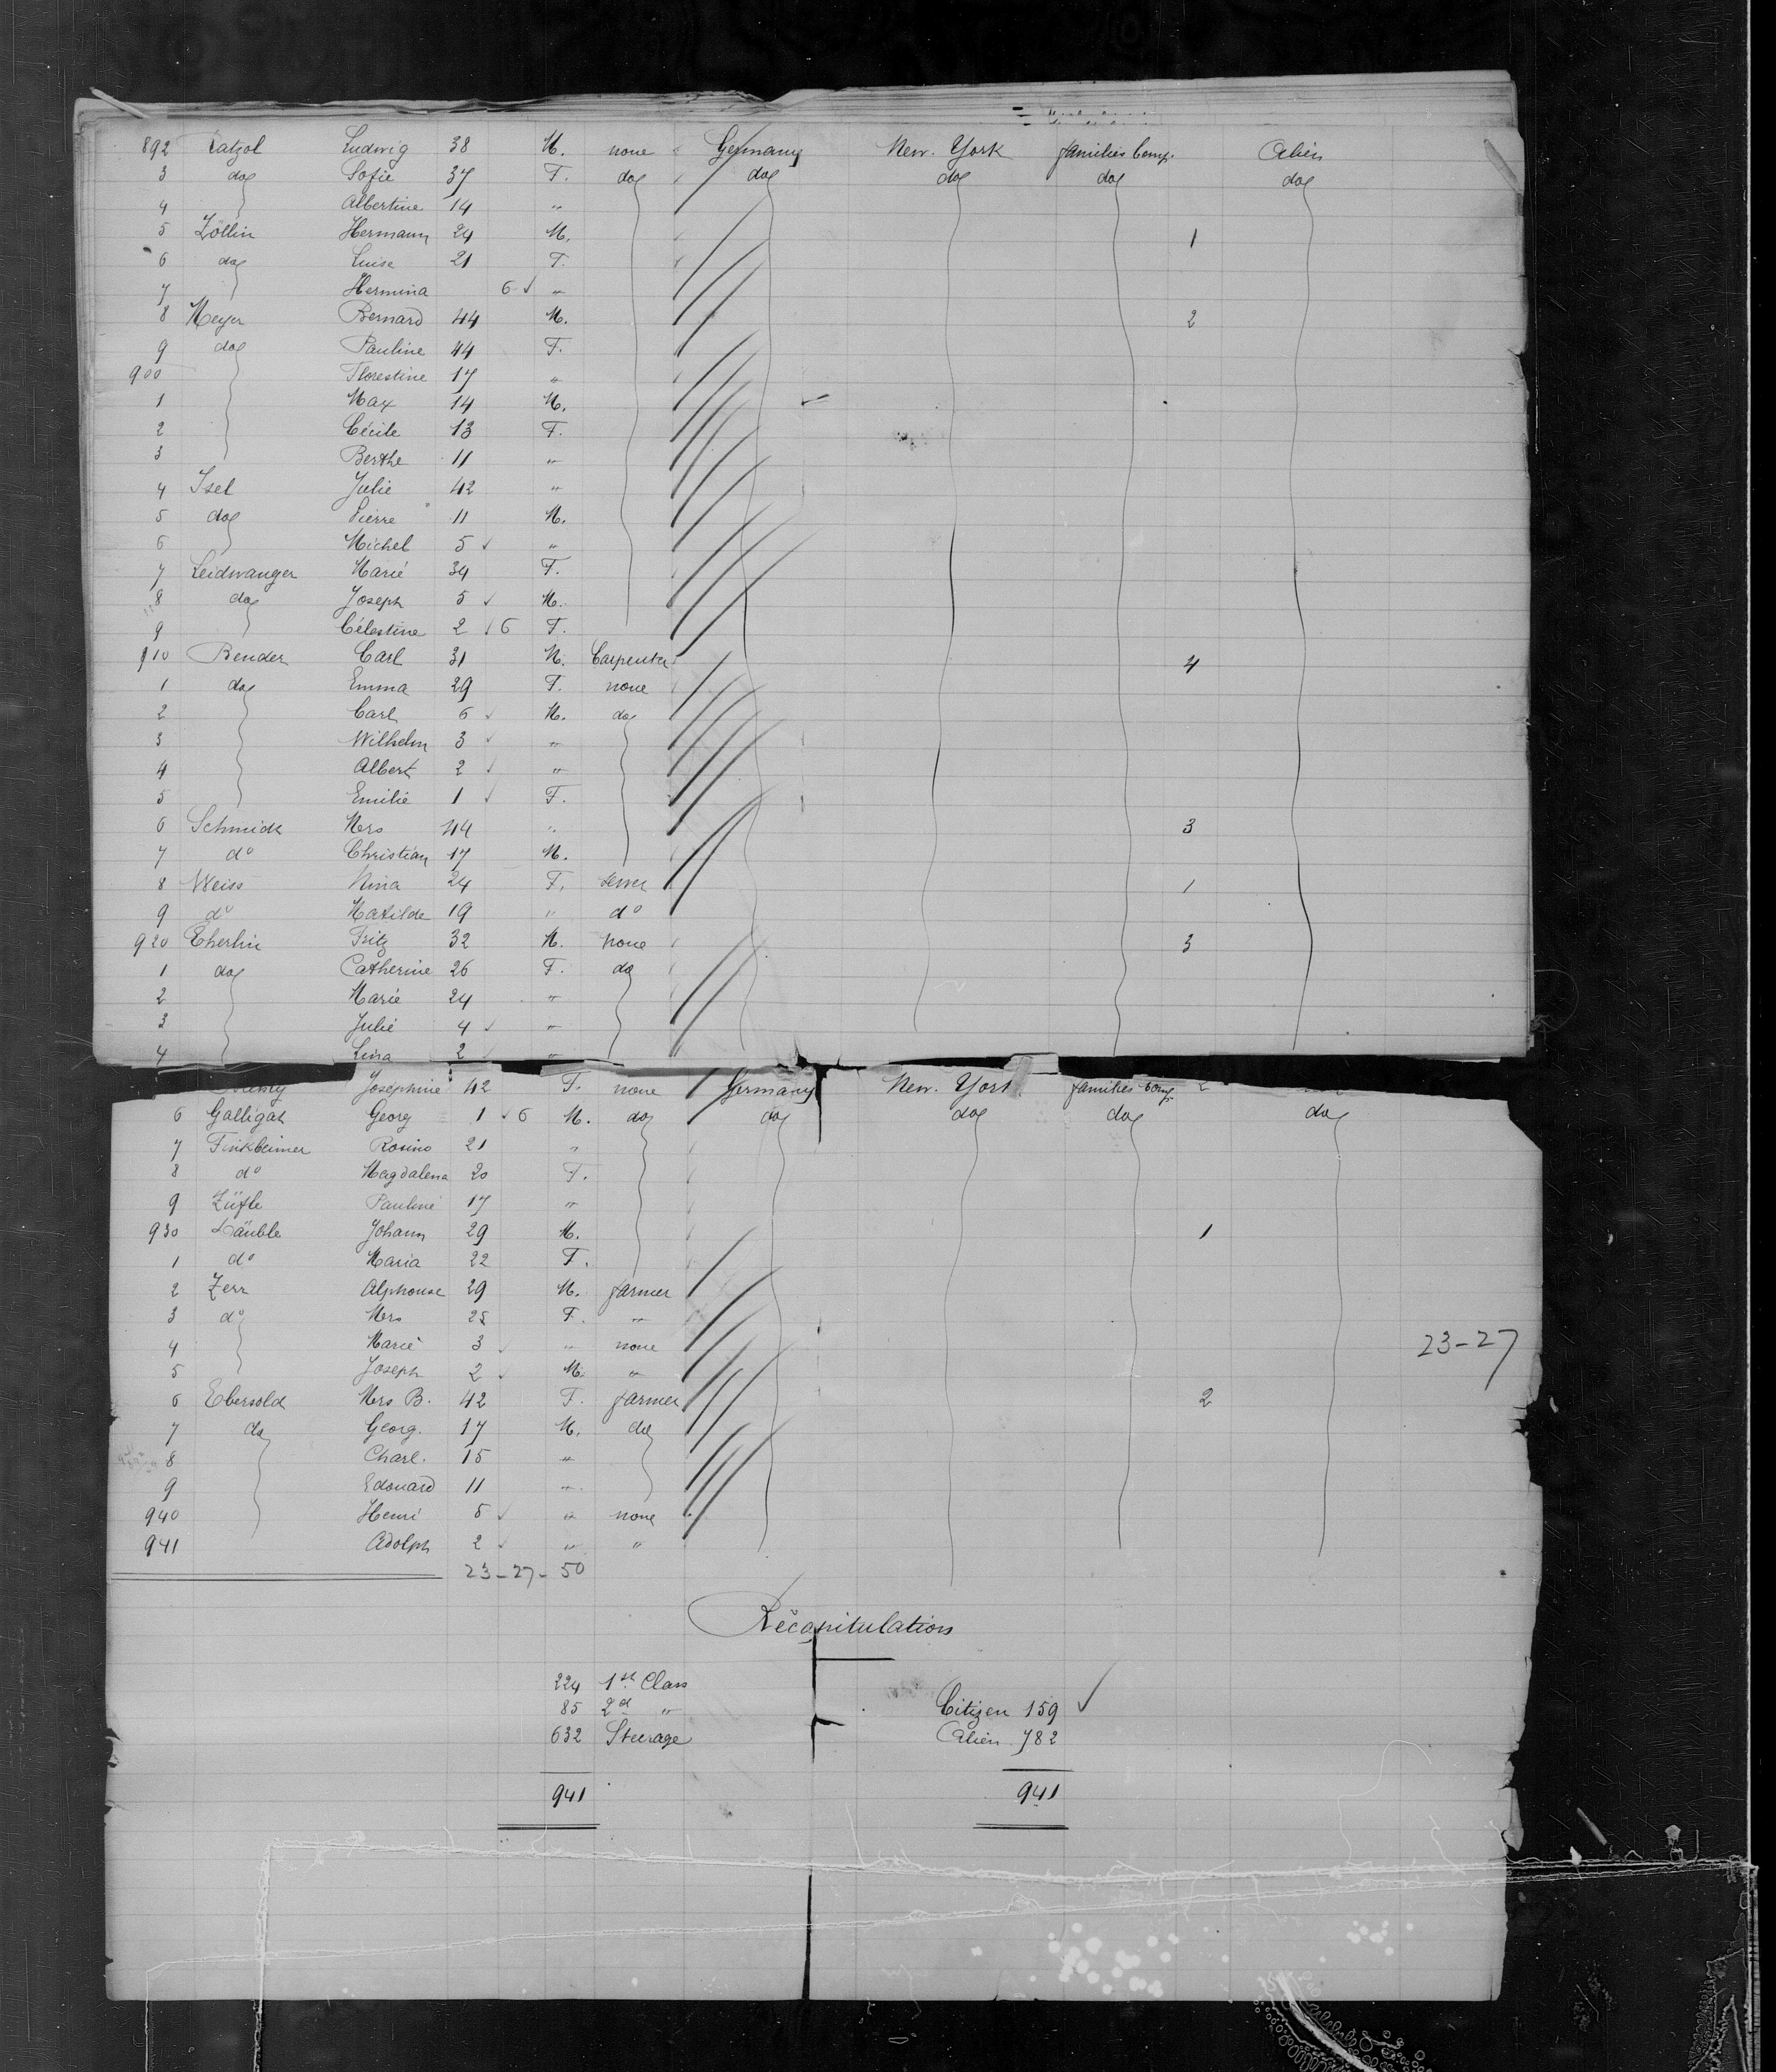 892 Ludwig 38 M. none Germany New. York families Comp. Alien
3 do Sofie 37 F. do do do do do
4 Albertine 14 "
5 Zöllin Hermann 24 M. 1
6 do Luise 21 F.
7 Hermina 6 "
8 Meyer Bernard 44 M. 2
9 do Pauline 44 F.
900 Florestine 17 "
1 Max 14 M.
2 Cécile 13 F.
3 Berthe 11 "
4 Isel Julie 42 "
5 do Pierre 11 M.
6 Michel 5 "
7 Leidwanger Marie 34 F.
8 do Joseph 5 M.
9 Célestine 2 6 F.
910 Bender Carl 31 M. Carpenter 4
1 do Emma 29 F. none
2 Carl 6 M. do
3 Wilhelm 3 "
4 Albert 2 "
5 Emilie 1 F.
6 Schmidt Mrs 44 " 3
7 do Christian 17 M.
8 Weiss Nina 24 F. 1
9 do Matilde 19 " do
920 Fritz 32 M. none 3
1 do Catherine 26 F. do
2 Marie 24 "
3 Julie 4 "
4 Lina 2 "
Josephine 42 F. none Germany New. York families Comp. 2
6 Galligat Georg 1 6 M. do do do do do
7 Finkbeiner Rosine 21 "
8 do Magdalena 20 F.
9 Züfle Pauline 17 "
930 Läuble Johann 29 M. 1
1 do Maria 22 F.
2 Zerr Alphonse 29 M. farmer
3 do Mrs 25 F. "
4 Marie 3 " none 23-27
5 Joseph 2 M. "
6 Ebersold Mrs B. 42 F. farmer 2
7 do Georg. 17 M. do
8 Charl. 15 "
9 Edouard 11 "
940 Henri 5 " none
941 Adolph 2 " "
23-27-50
Récapitulation
224 1st Class
85 2d " Citizen 159
632 Steerage Alien 782
941 941